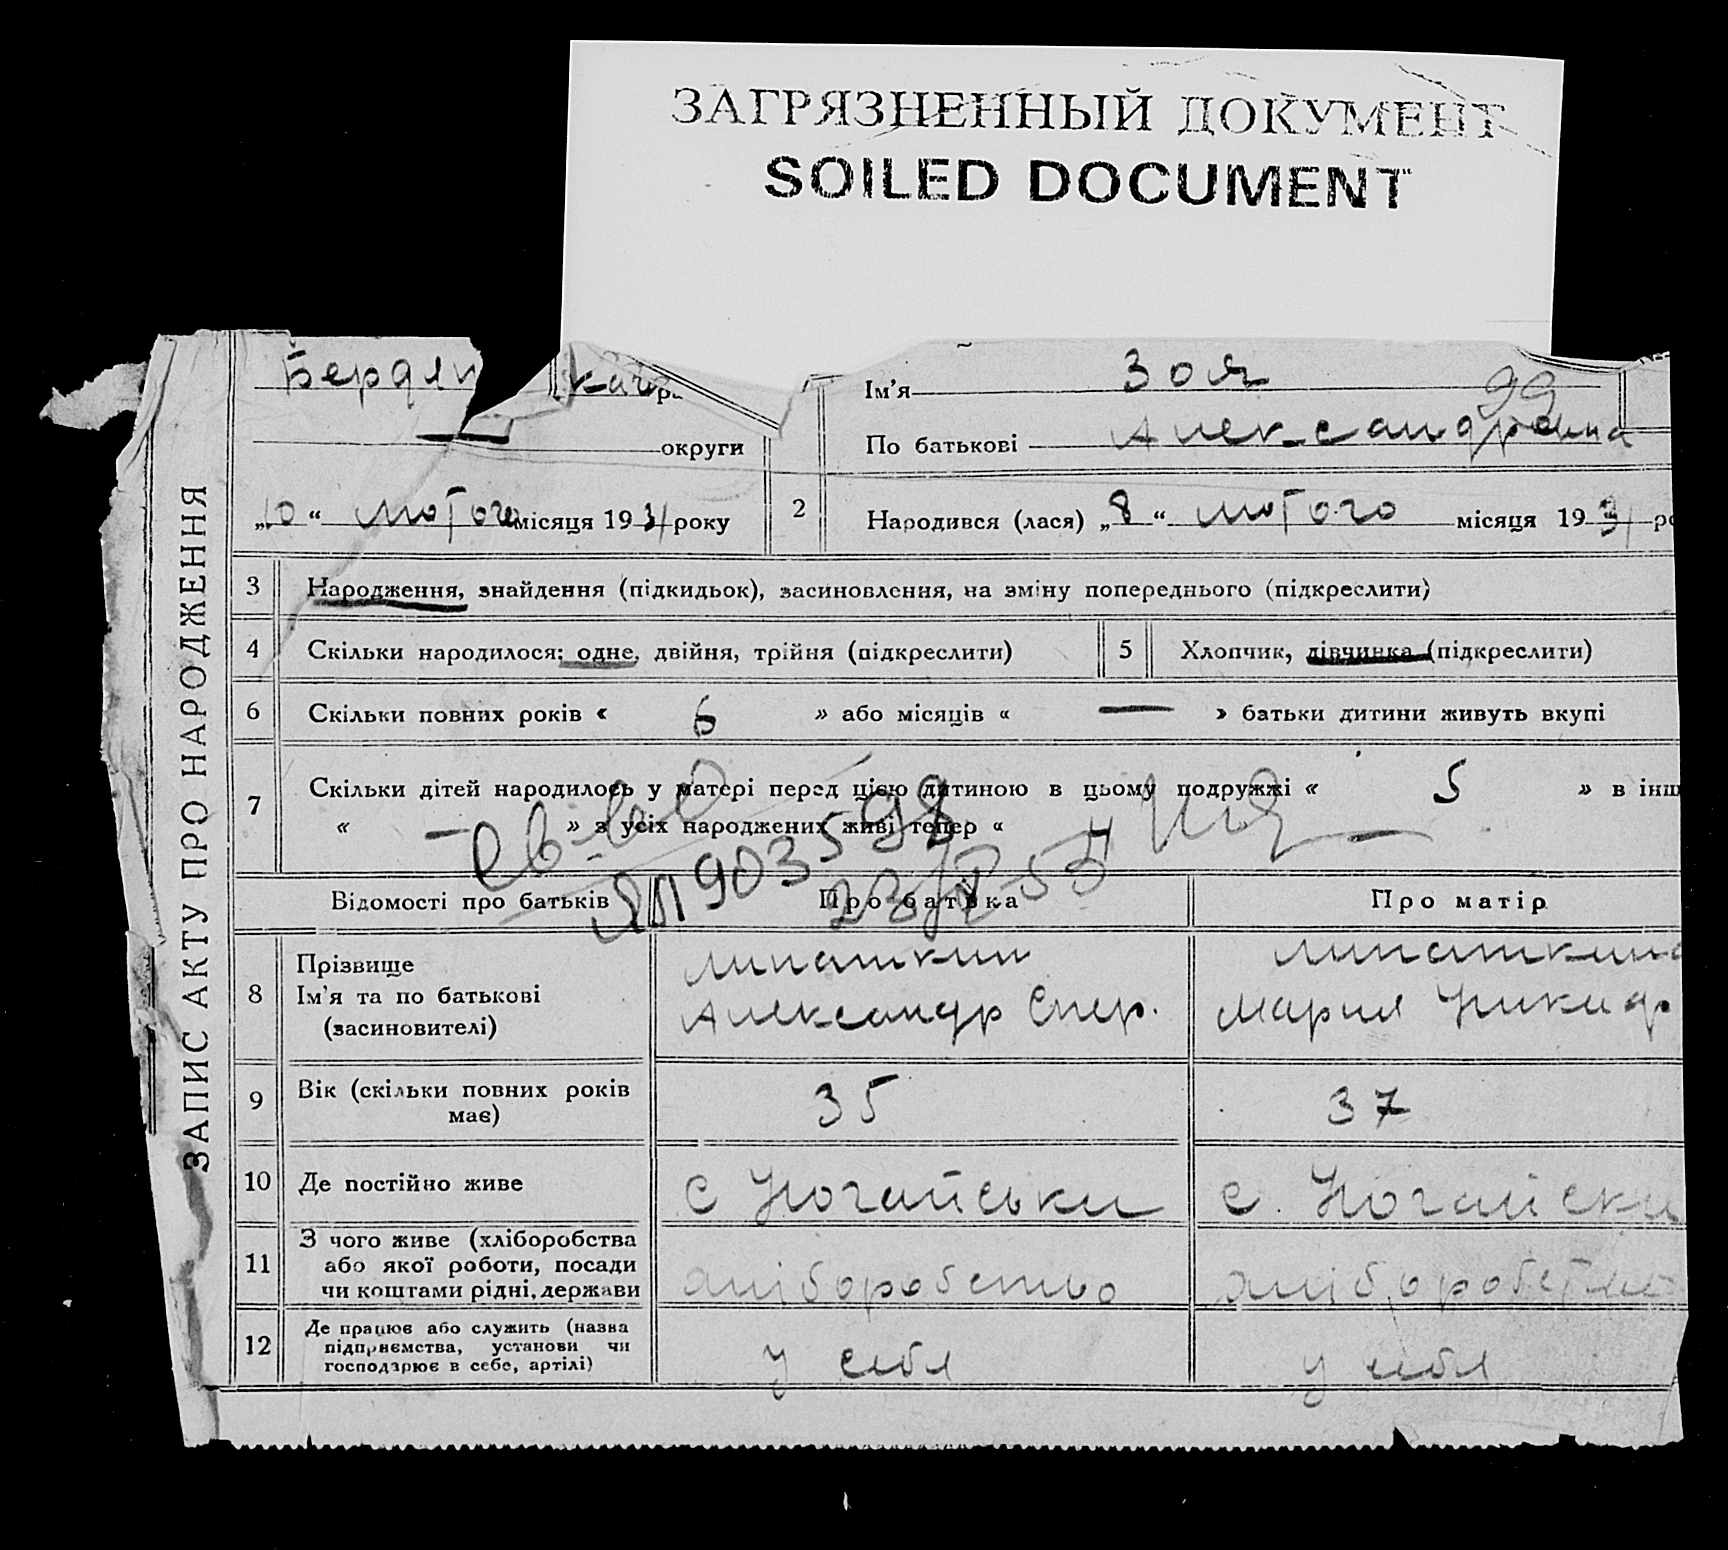 ЗАГРЯЗНЕННЫЙ ДОКУМЕНТ
SOILED DOCUMENT
ЗАПИС АКТУ ПРО НАРОДЖЕННЯ
Бердян
округи
„10“ лютого місяця 1931 року
Ім’я Зоя
99
По батькові Александровна
2
Народився (лася) „8“ лютого місяця 1931
3 Народження, знайдення (підкидьок), засиновлення, на зміну попереднього (підкреслити)
4 Скільки народилося: одне, двійня, трійня (підкреслити) 5 Хлопчик, дівчинка (підкреслити)
6 Скільки повних років « 6 » або місяців « — » батьки дитини живуть вкупі
7 Скільки дітей народилось у матері перед цією дитиною в цьому подружжі « 5 » в інш
« — » з усіх народжених живі тепер « 4
св-во
ЯП 903598
Відомості про батьків Про батька Про матір
8 Прізвище
Ім’я та по батькові
(засиновителі)
Липаткин
Александр Спер.
Липаткина
Мария Никиф
9 Вік (скільки повних років має) 35 37
10 Де постійно живе с Ногайськи с. Ногайски
11 З чого живе (хліборобства
або якої роботи, посади
чи коштами рідні, держави
хліборобство
12 Де працює або служить (назва
підприємства, установи чи
господарює в себе, артілі)
у себя у себя